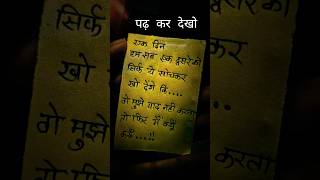 पढ़ कर देखो
एक दिन
हम सब एक दूसरे को
सिर्फ ये सोचकर
खो देंगे कि....
वो मुझे याद नहीं करता
तो फिर मैं क्यूँ
करूँ....!!
सिर्फ
खो
वो मुझे
तो फि
सोचकर
कि....
हीं करता
क्यूँ